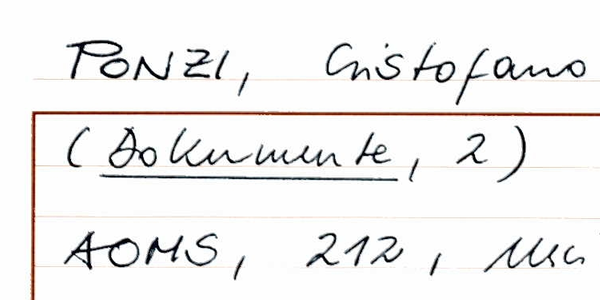 PONZI, Cristofano
(Dokumente, 2)
AOMS, 212,